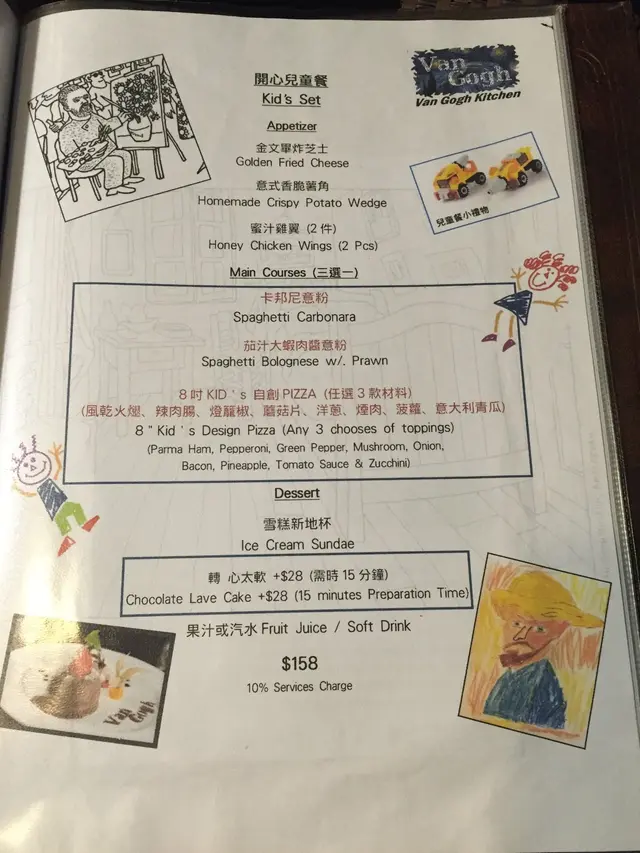 開心兒童餐
Kid's Set
Van Gogh
Van Gogh Kitchen
Appetizer
金文畢炸芝士
Golden Fried Cheese
意式香脆薯角
Homemade Crispy Potato Wedge
蜜汁雞翼 (2 件)
Honey Chicken Wings (2 Pcs)
兒童餐小禮物
Main Courses (三選一)
卡邦尼意粉
Spaghetti Carbonara
茄汁大蝦肉醬意粉
Spaghetti Bolognese w/. Prawn
8 吋 KID ' s 自創 PIZZA (任選 3 款材料)
(風乾火煺、辣肉腸、燈籠椒、蘑菇片、洋蔥、煙肉、菠蘿、意大利青瓜)
8 " Kid ' s Design Pizza (Any 3 chooses of toppings)
(Parma Ham, Pepperoni, Green Pepper, Mushroom, Onion,
Bacon, Pineapple, Tomato Sauce & Zucchini)
Dessert
雪糕新地杯
Ice Cream Sundae
轉 心太軟 +$28 (需時 15 分鐘)
Chocolate Lave Cake +$28 (15 minutes Preparation Time)
果汁或汽水 Fruit Juice / Soft Drink
$158
10% Services Charge
Van Gogh